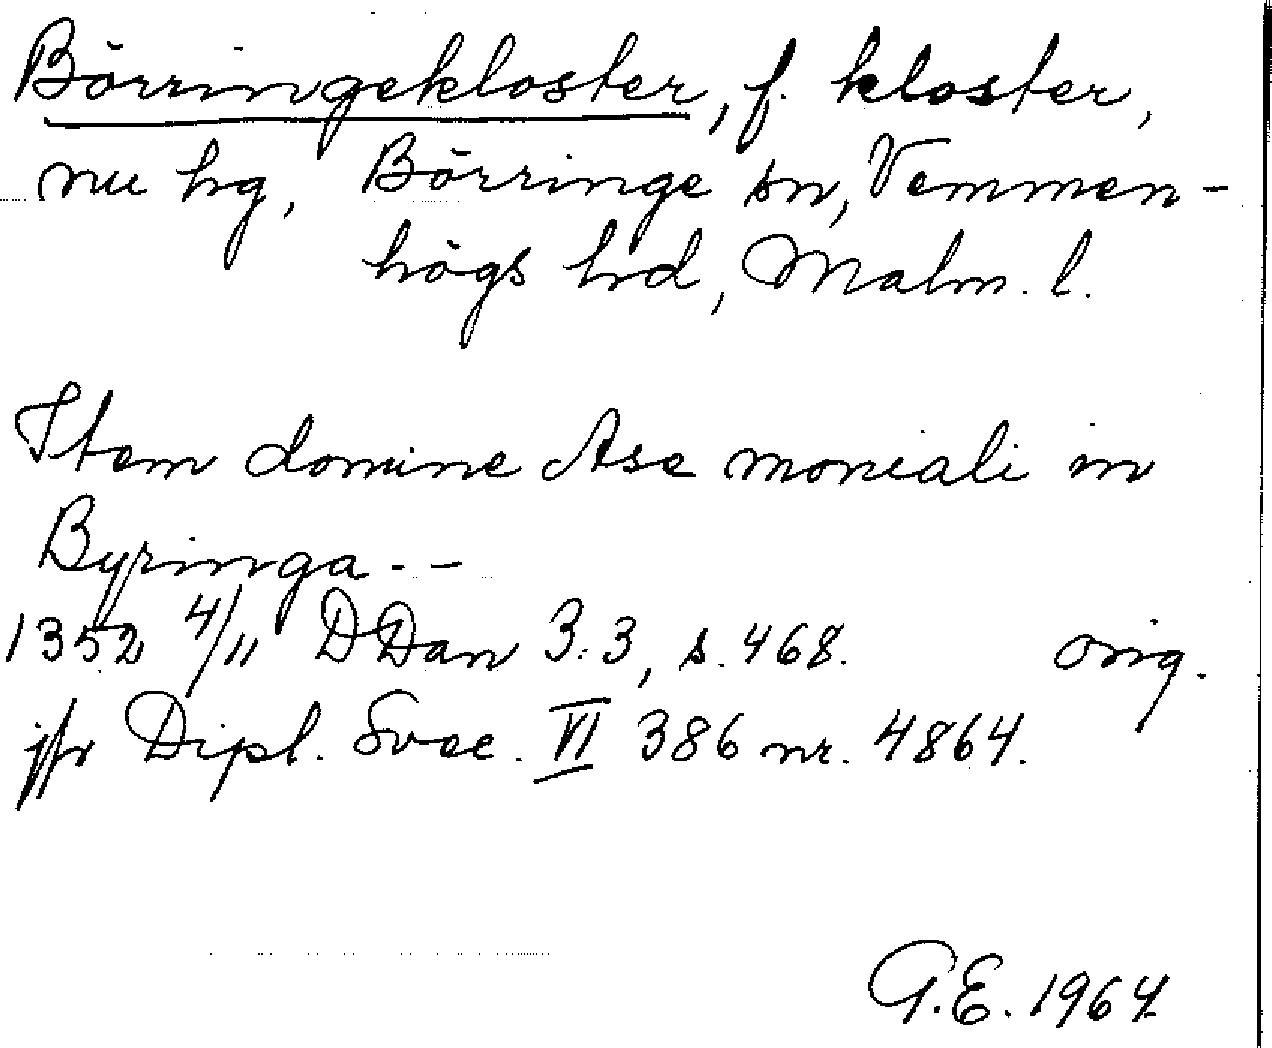 Börringekloster, f. kloster,
nu hg, Börringe sn, Vemmen-
högs hd, Malm. l.
Item domine Ase moniali in
Byringa - -
1352 4/11 DDan 3:3, s. 468. orig.
jfr Dipl. Svec. VI 386 nr. 4864.
G.E. 1964